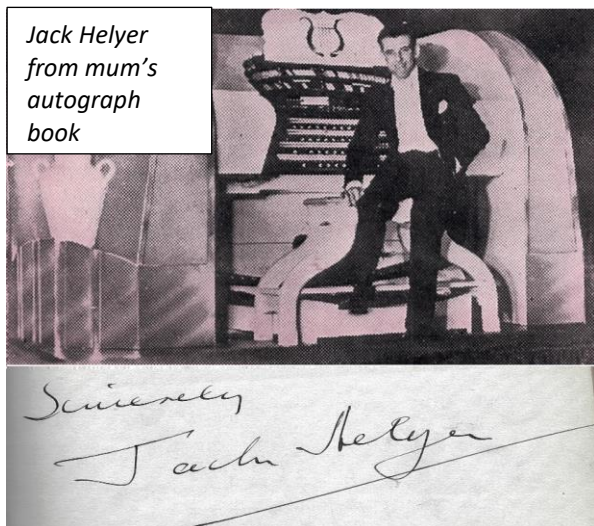 Jack Helyer
from mum's
autograph
book
Sincerely
Jack Helyer